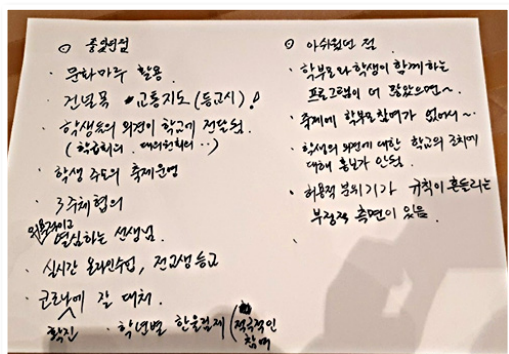 ◎ 좋았던점
· 문화마루 활용.
· 건널목 교통지도 (등교시)!
· 학생들의 의견이 학교에 전달됨
(학급회의, 대의원회의 ··)
· 학생 주도의 축제운영
· 3주체협의
의욕적이고
· 열심하는 선생님.
· 실시간 온라인수업, 전교생등교
· 코로나에 잘 대처.
확진
· 학년별 한울림제 (적극적인
참여
◎ 아쉬웠던 점
· 학부모와 학생이 함께하는
프로그램이 더 많았으면~.
· 축제에 학부모 참여가 없어서~.
· 학생의 의견에 대한 학교의 조치에
대해 홍보가 안됨.
· 허용적 분위기가 규칙이 흔들리는
부정적 측면이 있음.
·